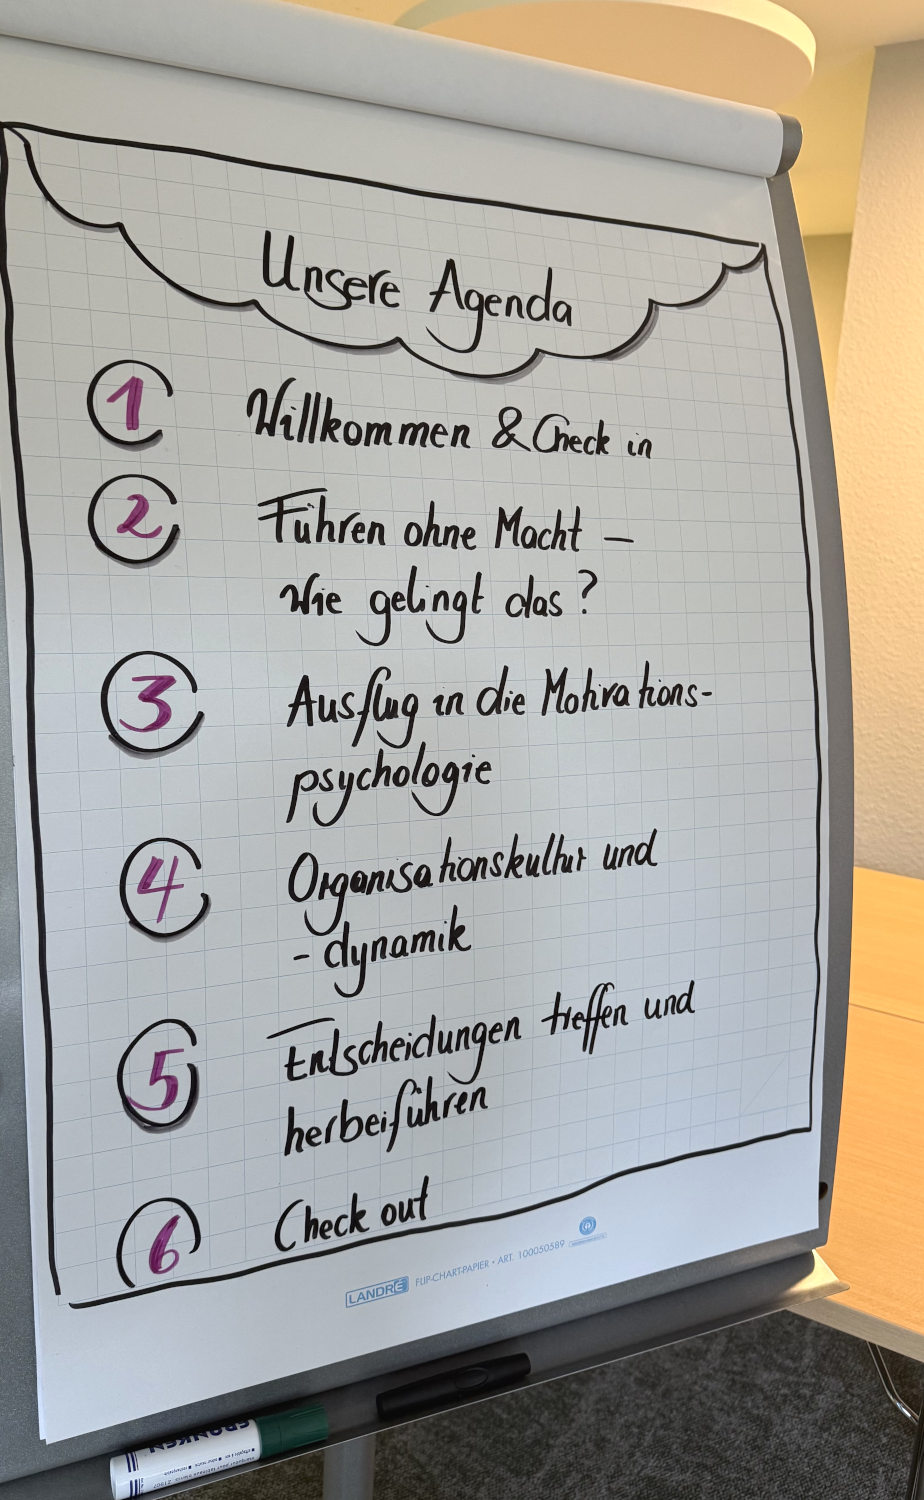 Unsere Agenda
1 Willkommen & Check in
2 Führen ohne Macht –
Wie gelingt das?
3 Ausflug in die Motivations-
psychologie
4 Organisationskultur und
- dynamik
5 Entscheidungen treffen und
herbeiführen
6 Check out
LANDRÉ FLIP-CHART-PAPIER • ART. 100050589
FRANKEN